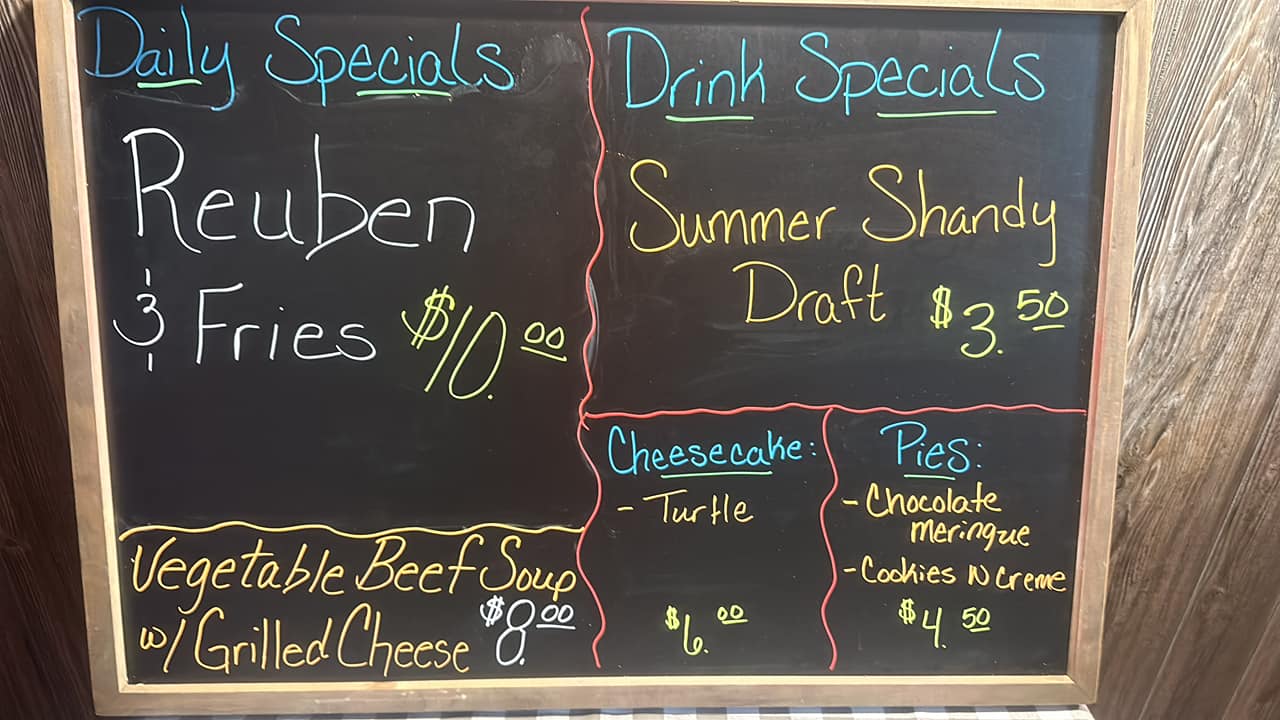 Daily Specials
Reuben
& Fries $10.00
Vegetable Beef Soup
w/ Grilled Cheese $8.00
Drink Specials
Summer Shandy
Draft $3.50
Cheesecake:
- Turtle
$6.00
Pies:
- Chocolate
meringue
- Cookies N Creme
$4.50